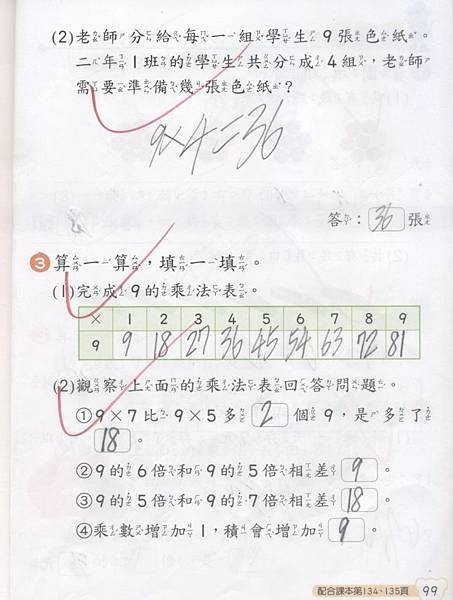 (2)老師分給每一組學生9張色紙。
二年1班的學生共分成4組,老師
需要準備幾張色紙?
9×4=36
答:36張
3 算一算,填一填。
(1)完成9的乘法表。
× 1 2 3 4 5 6 7 8 9
9 9 18 27 36 45 54 63 72 81
(2)觀察上面的乘法表回答問題。
①9×7比9×5多 2 個9,是多了
18。
②9的6倍和9的5倍相差 9。
③9的5倍和9的7倍相差 18。
④乘數增加1,積會增加 9。
配合課本第134、135頁 99